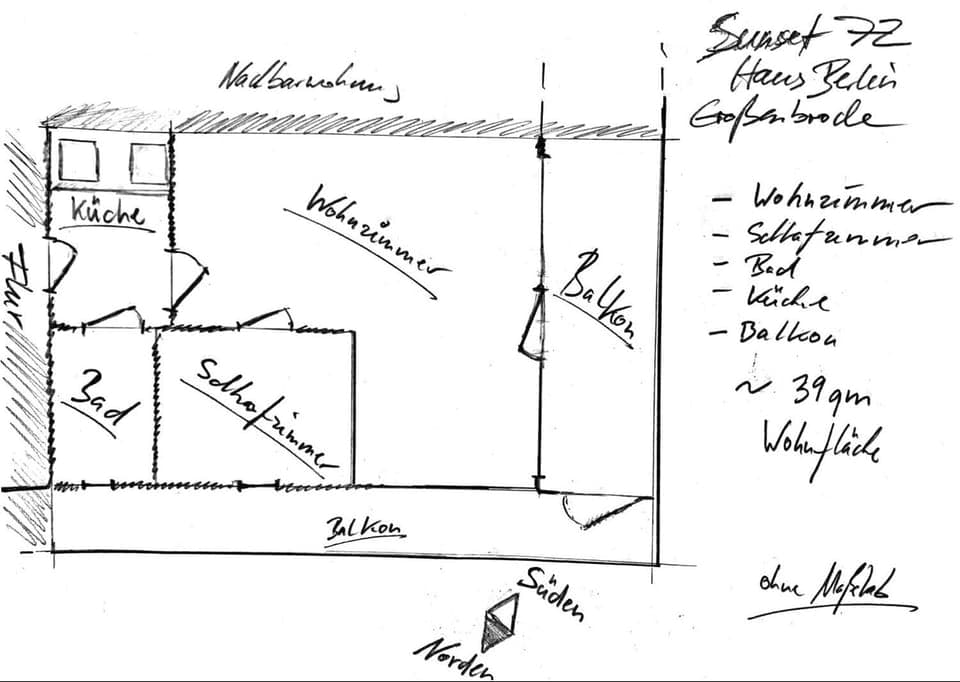 Sunset 72
Haus Berlin
Großenbrode
Nachbarwohnung
Küche
Wohnzimmer
Flur
Balkon
Bad
Schlafzimmer
Balkon
- Wohnzimmer
- Schlafzimmer
- Bad
- Küche
- Balkon
~ 39 qm
Wohnfläche
ohne Maßstab
Süden
Norden